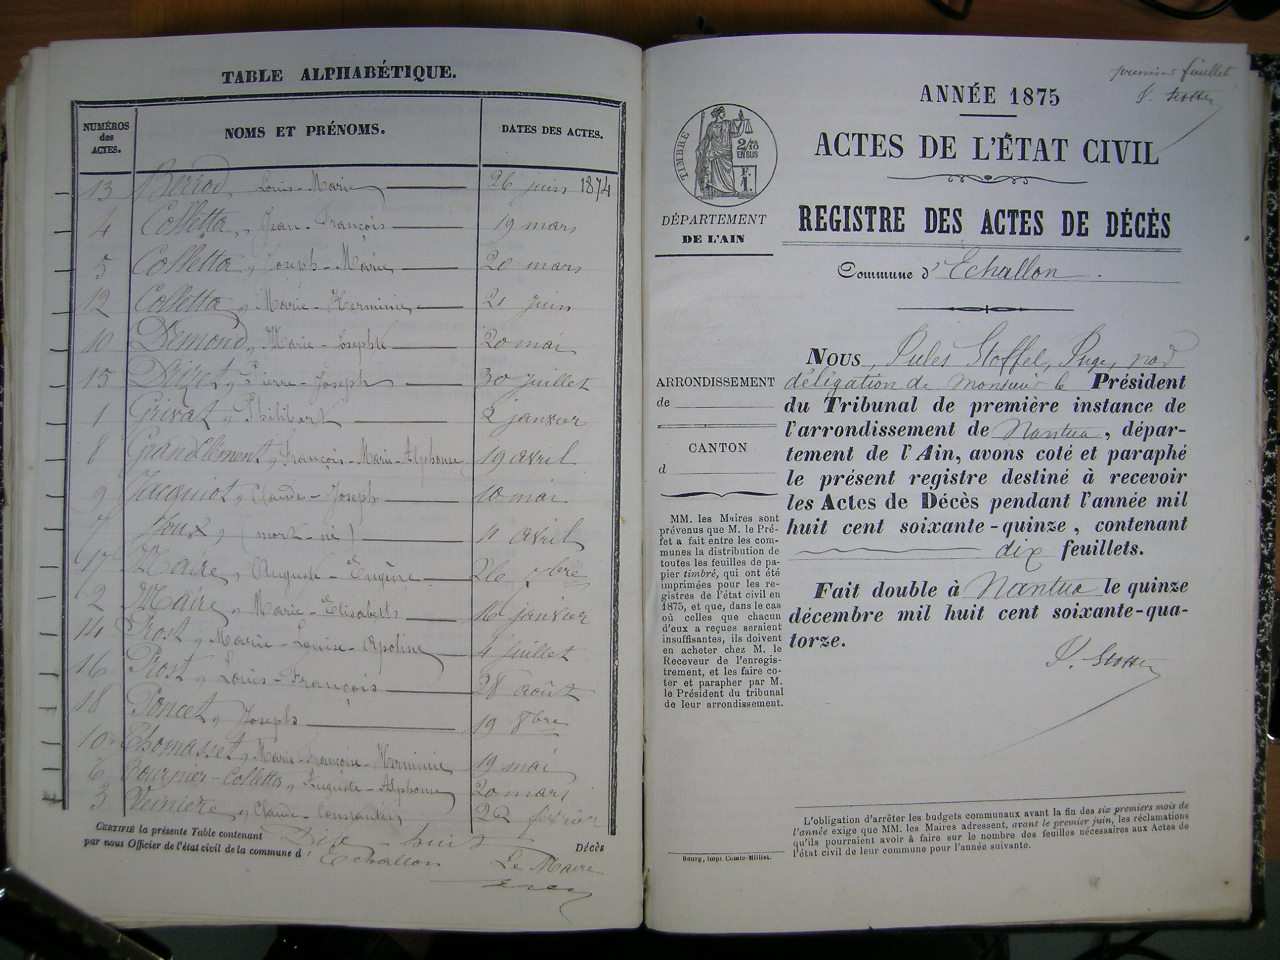 TABLE ALPHABÉTIQUE.
NUMÉROS des ACTES. NOMS ET PRÉNOMS. DATES DES ACTES.
13 Berrod, Louis-Marie 26 juin 1874
4 Colletta, Jean-François 19 mars
5 Colletta, Joseph-Marie 20 mars
12 Colletta, Marie-Herminie 21 juin
10 Marie-Josephte 20 mai
15 Pierre-Joseph 30 juillet
1 Grivat, Philibert 2 janvier
8 Grandclément, François-Marie-Alphonse 19 avril
9 Jacquiot, Claude-Joseph 10 mai
7 Joux, (mort-né) 11 avril
17 Maire, Auguste-Eugène 26 7bre
2 Maire, Marie-Elisabeth 16 janvier
14 Prost, Marie-Louise-Apoline 4 juillet
16 Prost, Louis-François 28 août
18 Poncet, Joseph 19 8bre
10 Thomasset, Marie-Françoise-Herminie 19 mai
6 Tournier-Colletta, Auguste-Alphonse 20 mars
3 Claude-Constantin 22 février
CERTIFIÉ la présente Table contenant Dix-huit Décès
par nous Officier de l'état civil de la commune d'Echallon
Le Maire
premier feuillet
J. Stoffel
ANNÉE 1875
ACTES DE L'ÉTAT CIVIL
REGISTRE DES ACTES DE DÉCÈS
Commune d'Echallon.
TIMBRE
2/10
EN SUS
F.
1.
DÉPARTEMENT
DE L'AIN
ARRONDISSEMENT
de
CANTON
d
MM. les Maires sont
prévenus que M. le Pré-
fet a fait entre les com-
munes la distribution de
toutes les feuilles de pa-
pier timbré, qui ont été
imprimées pour les re-
gistres de l'état civil en
1875, et que, dans le cas
où celles que chacun
d'eux a reçues seraient
insuffisantes, ils doivent
en acheter chez M. le
Receveur de l'enregis-
trement, et les faire co-
ter et parapher par M.
le Président du tribunal
de leur arrondissement.
NOUS, Jules Stoffel, Juge, par
déligation de Monsieur le Président
du Tribunal de première instance de
l'arrondissement de Nantua, dépar-
tement de l'Ain, avons coté et paraphé
le présent registre destiné à recevoir
les Actes de Décès pendant l'année mil
huit cent soixante-quinze, contenant
dix feuillets.
Fait double à Nantua le quinze
décembre mil huit cent soixante-qua-
torze.
J. Stoffel
L'obligation d'arrêter les budgets communaux avant la fin des six premiers mois de
l'année exige que MM. les Maires adressent, avant le premier juin, les réclamations
qu'ils pourraient avoir à faire sur le nombre des feuilles nécessaires aux Actes de
l'état civil de leur commune pour l'année suivante.
Bourg, Impr. Comte-Milliet.